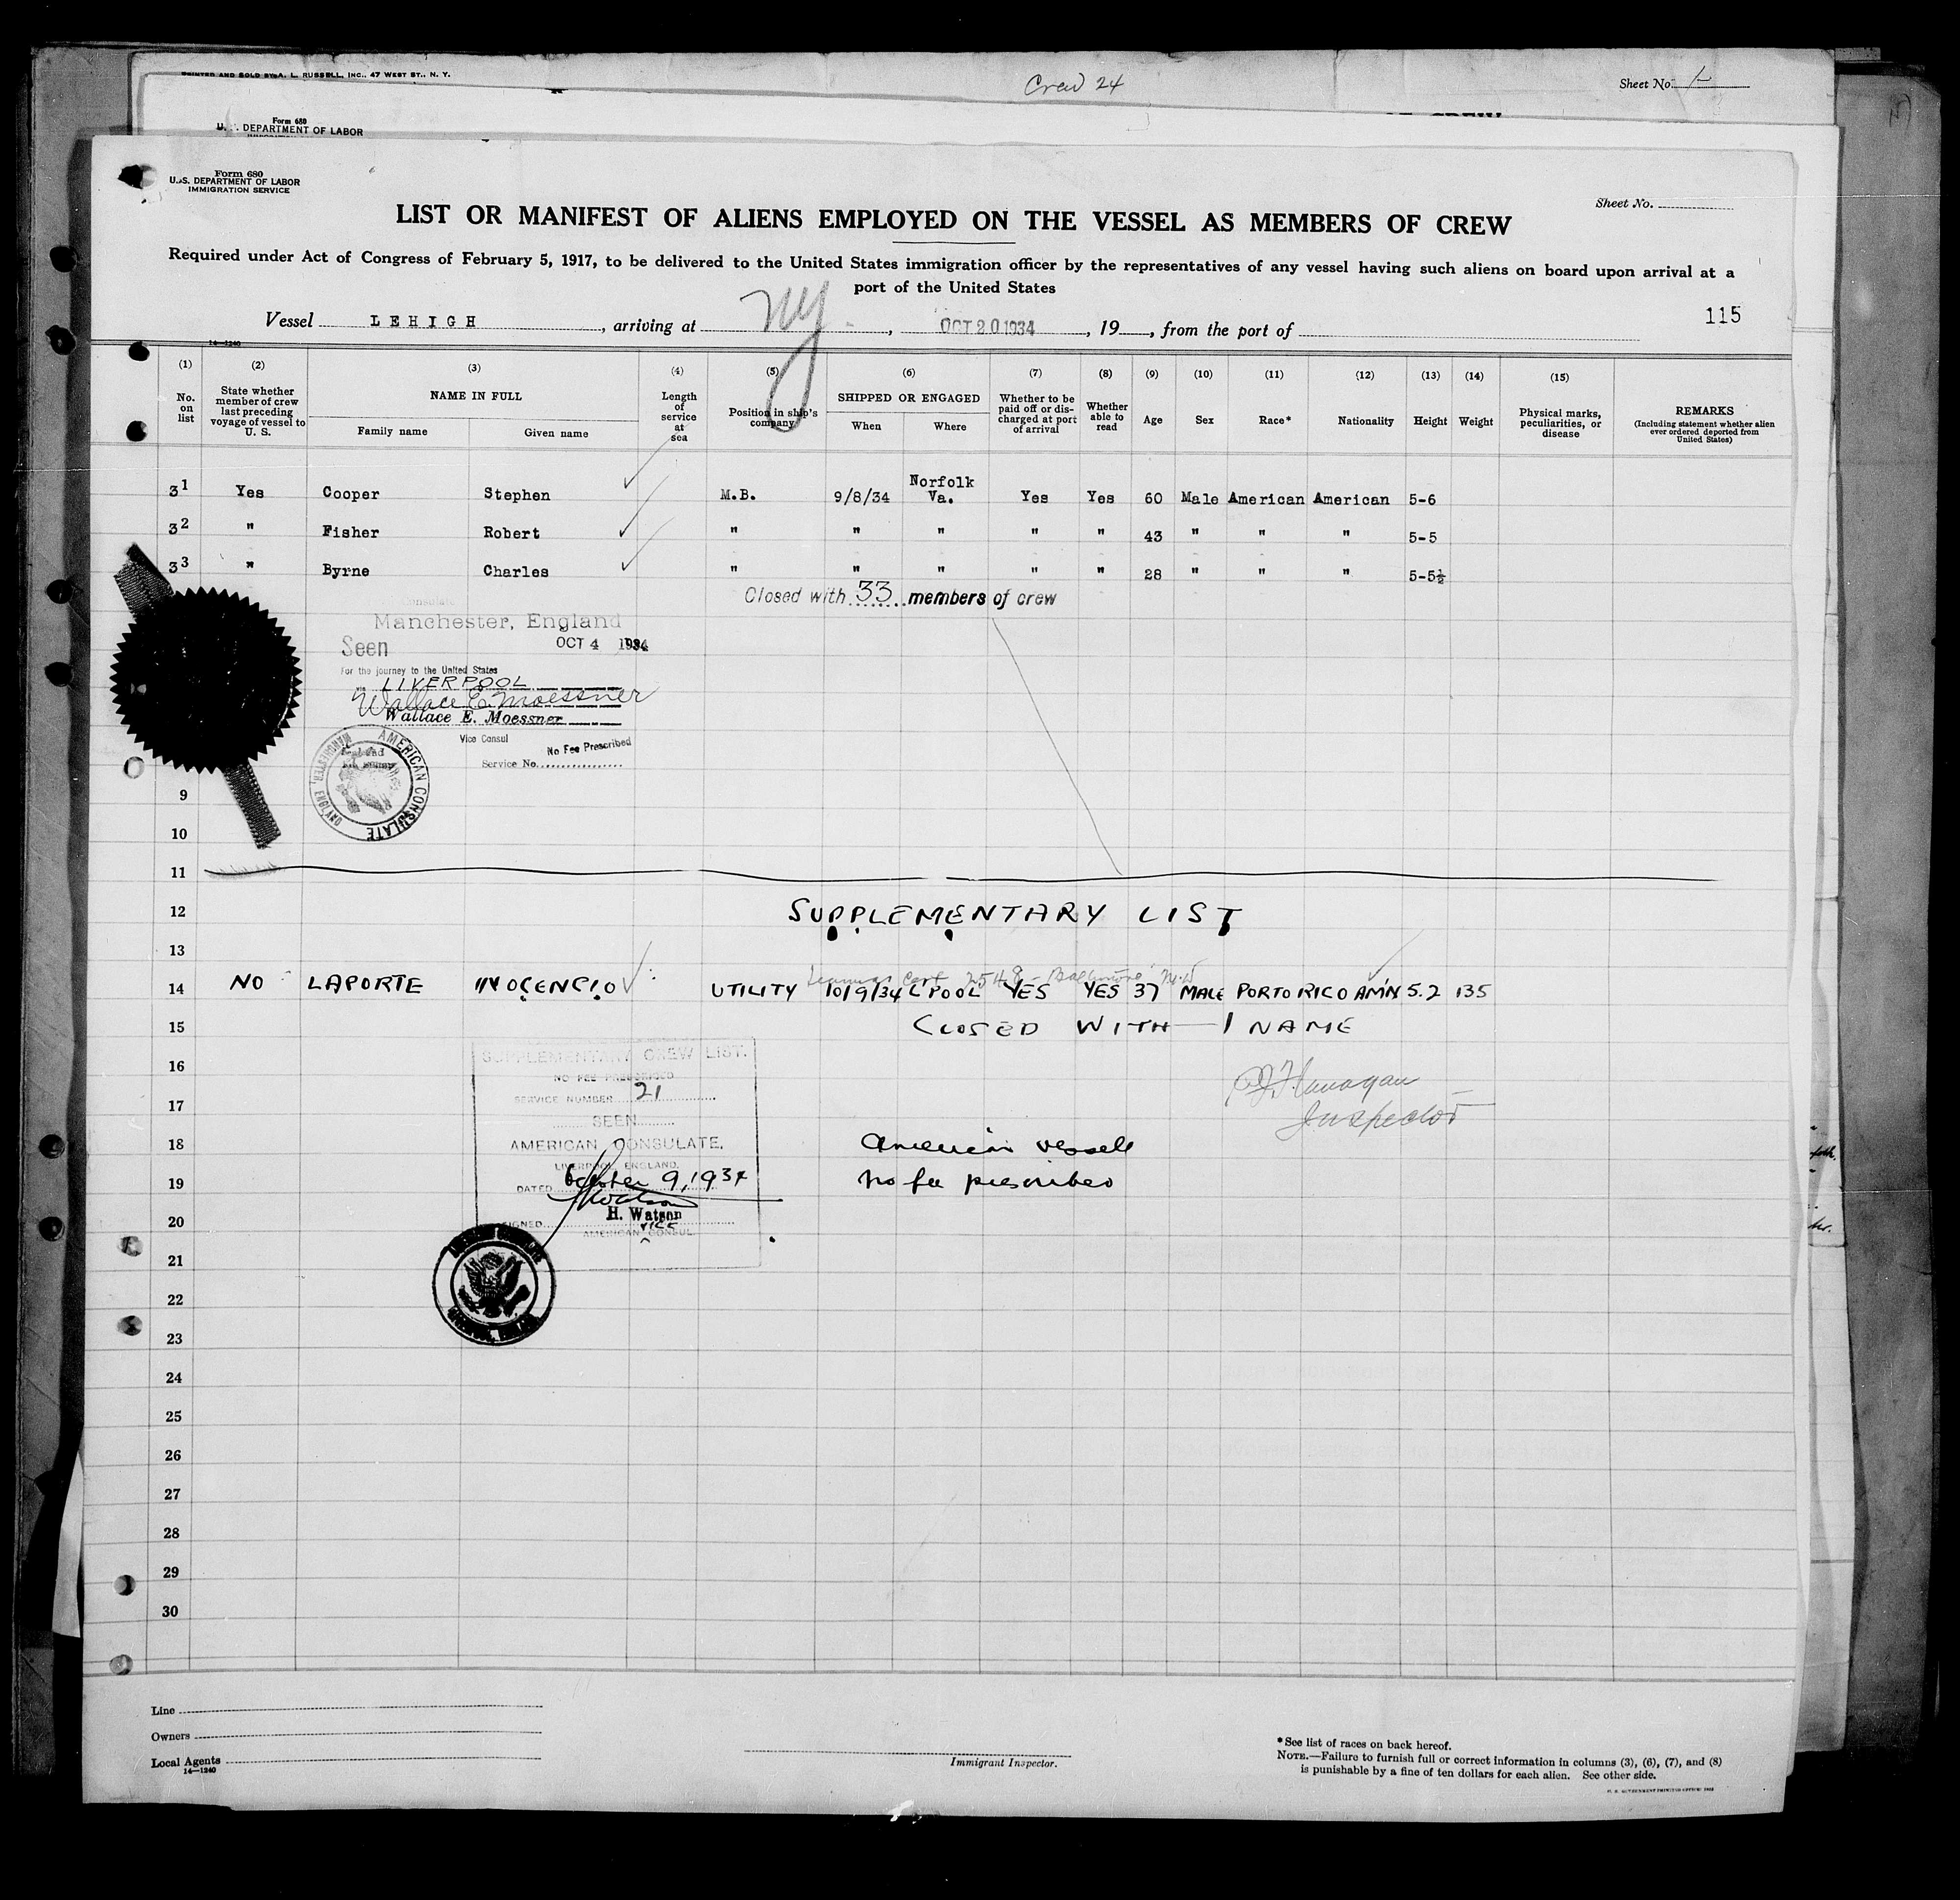 PRINTED AND SOLD BY A. L. RUSSELL, INC., 47 WEST ST., N. Y.
Crew 24
Sheet No. 1
Form 680
U. S. DEPARTMENT OF LABOR
Form 680
U. S. DEPARTMENT OF LABOR
IMMIGRATION SERVICE
Sheet No.
LIST OR MANIFEST OF ALIENS EMPLOYED ON THE VESSEL AS MEMBERS OF CREW
Required under Act of Congress of February 5, 1917, to be delivered to the United States immigration officer by the representatives of any vessel having such aliens on board upon arrival at a
port of the United States
115
Vessel LEHIGH, arriving at NY, OCT 20 1934, 19, from the port of
14—1240
(1) (2) (3) (4) (5) (6) (7) (8) (9) (10) (11) (12) (13) (14) (15)
No. on list
State whether member of crew last preceding voyage of vessel to U. S.
NAME IN FULL
Family name Given name
Length of service at sea
Position in ship's company
SHIPPED OR ENGAGED
When Where
Whether to be paid off or discharged at port of arrival
Whether able to read
Age Sex Race* Nationality Height Weight
Physical marks, peculiarities, or disease
REMARKS
(Including statement whether alien ever ordered deported from United States)
31 Yes Cooper Stephen M.B. 9/8/34 Norfolk Va. Yes Yes 60 Male American American 5-6
32 " Fisher Robert " " " " " 43 " " " 5-5
33 " Byrne Charles " " " " " 28 " " " 5-5½
Closed with 33 members of crew
Consulate
Manchester, England
Seen OCT 4 1934
For the journey to the United States
via LIVERPOOL
Wallace E. Moessner
Wallace E. Moessner
Vice Consul No Fee Prescribed
Service No.
AMERICAN CONSULATE
MANCHESTER, ENGLAND
9
10
11
12 SUPPLEMENTARY LIST
13
Seaman Cert 2548 - Baltimore
14 NO LAPORTE INOCENCIO UTILITY 10/9/34 LPOOL YES YES 37 MALE PORTO RICO AM'N 5.2 135
15 CLOSED WITH 1 NAME
SUPPLEMENTARY CREW LIST.
16
NO FEE PRESCRIBED
SERVICE NUMBER 21
17
Inspector
SEEN
18 AMERICAN CONSULATE,
American vessell
LIVERPOOL, ENGLAND.
19 DATED October 9, 1934
no fee prescribed
H. Watson
20 SIGNED
vice
AMERICAN CONSUL
21
22
23
24
25
26
27
28
29
30
Line
Owners
Local Agents
14—1240
Immigrant Inspector.
*See list of races on back hereof.
NOTE.—Failure to furnish full or correct information in columns (3), (6), (7), and (8)
is punishable by a fine of ten dollars for each alien. See other side.